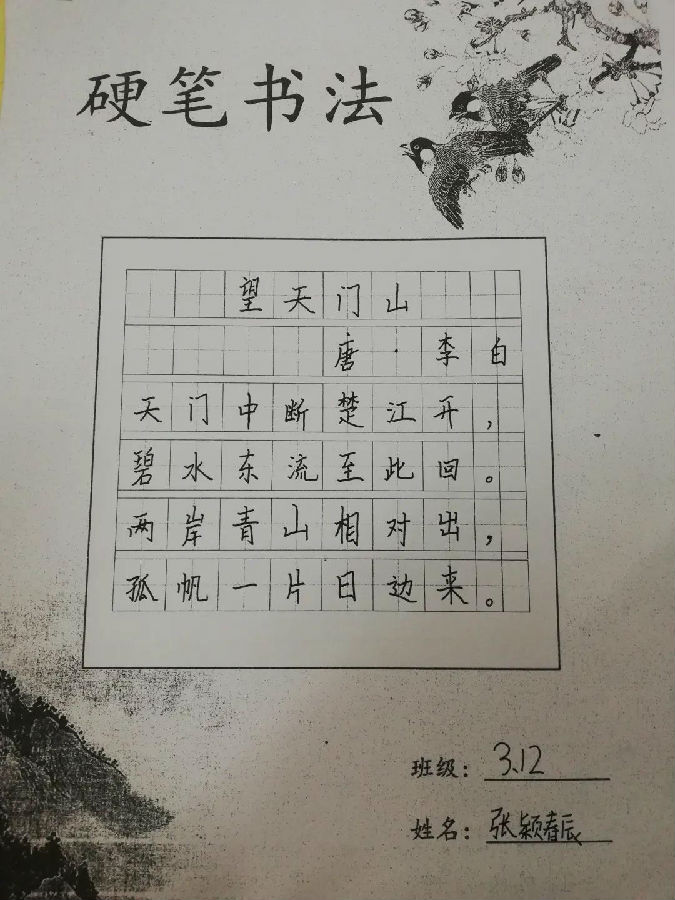 硬笔书法
望天门山
唐·李白
天门中断楚江开，
碧水东流至此回。
两岸青山相对出，
孤帆一片日边来。
班级：3.12
姓名：张颖春辰